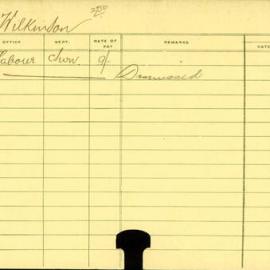 Wilkinson
OFFICE DEPT. RATE OF PAY REMARKS DATE
Labour 9/- Dismissed